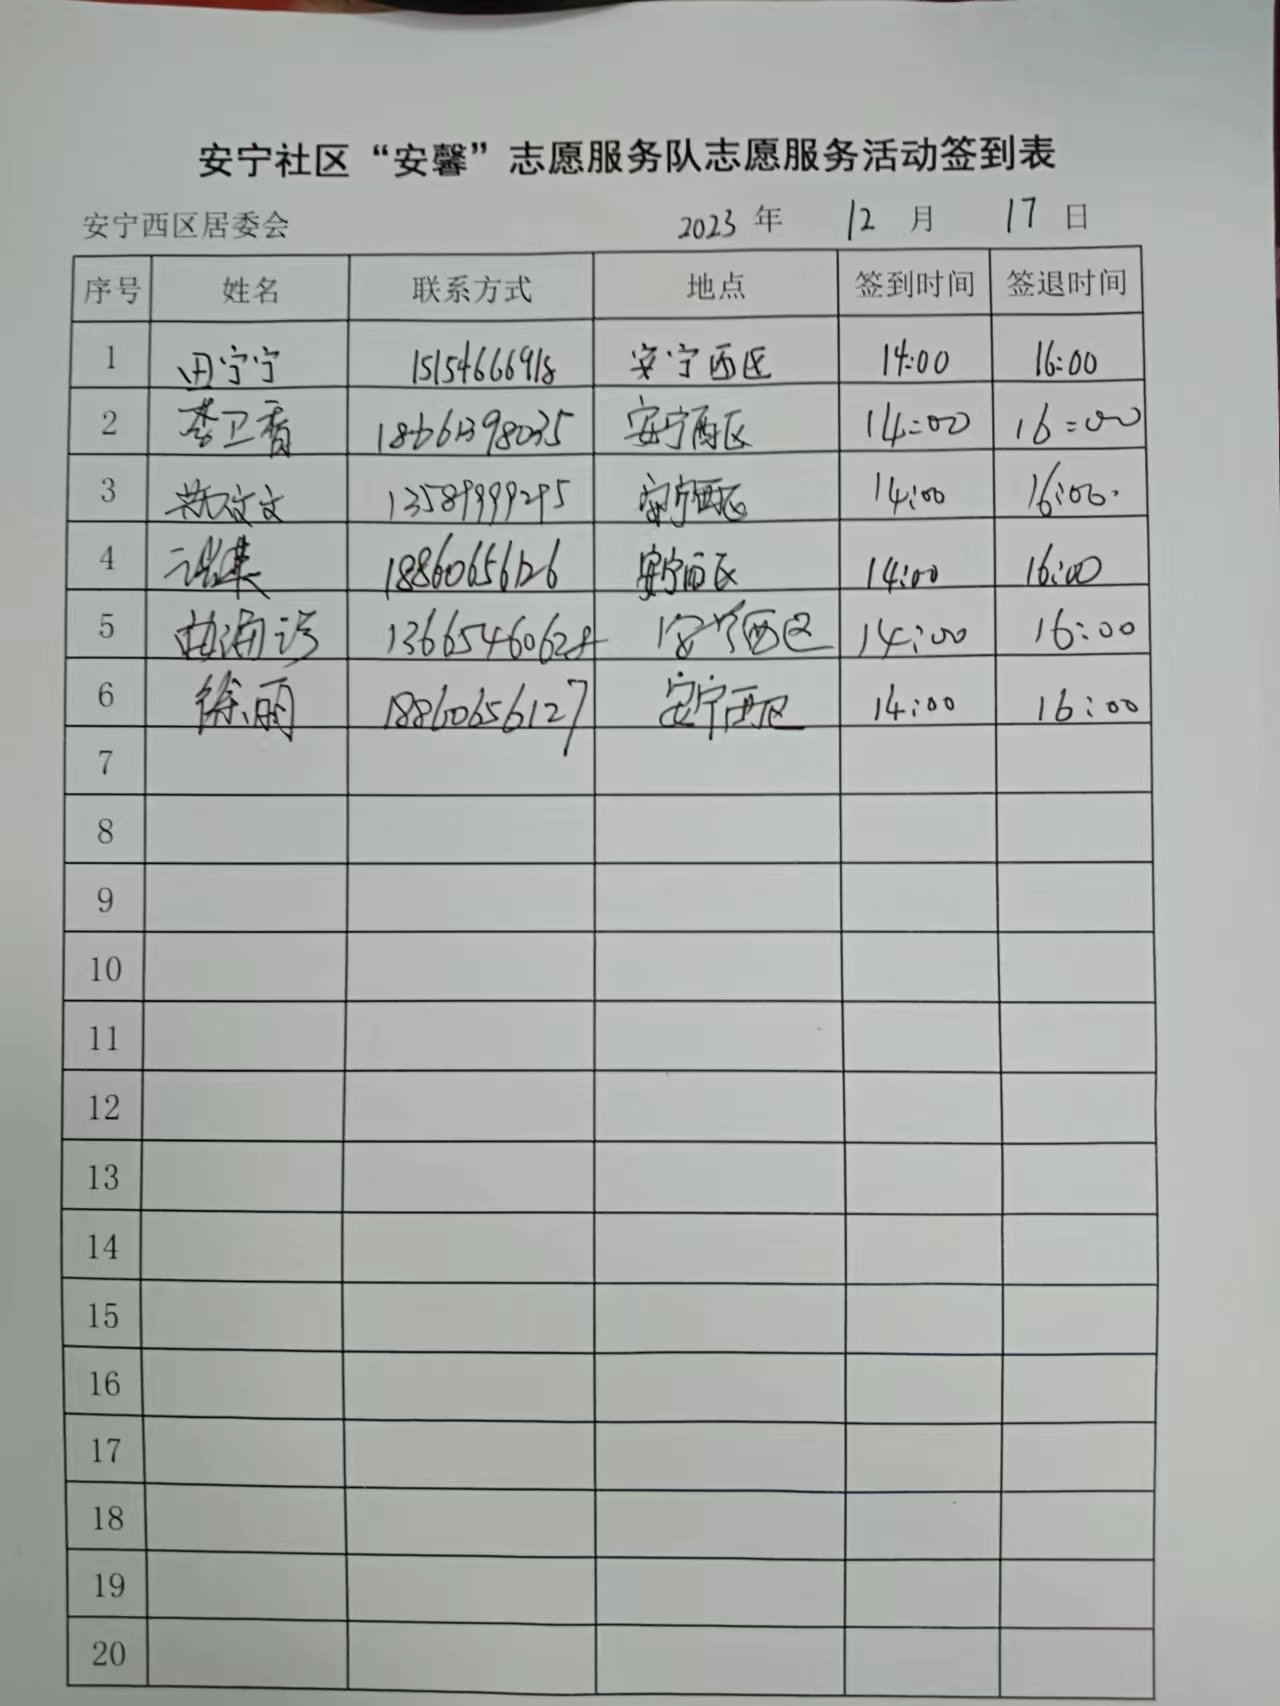 安宁社区“安馨”志愿服务队志愿服务活动签到表
安宁西区居委会 2023 年 12 月 17 日
序号 姓名 联系方式 地点 签到时间 签退时间
1 田宁宁 15154666918 安宁西区 14:00 16:00
2 李卫香 18661398035 安宁西区 14:00 16:00
3 13589999295 安宁西区 14:00 16:00
4 18860656126 安宁西区 14:00 16:00
5 13665460628 安宁西区 14:00 16:00
6 徐丽 18860656127 安宁西区 14:00 16:00
7
8
9
10
11
12
13
14
15
16
17
18
19
20